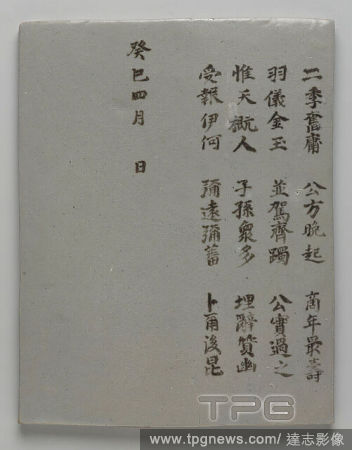 二季奮庸 公方晚起 高年最壽
羽儀金玉 並駕齊躅 公實過之
惟天翫人 子孫衆多 埋辭質幽
受報伊何 彌遠彌蕃 卜爾後昆
癸巳四月 日
TPG
www.tpgnews.com / 達志影像